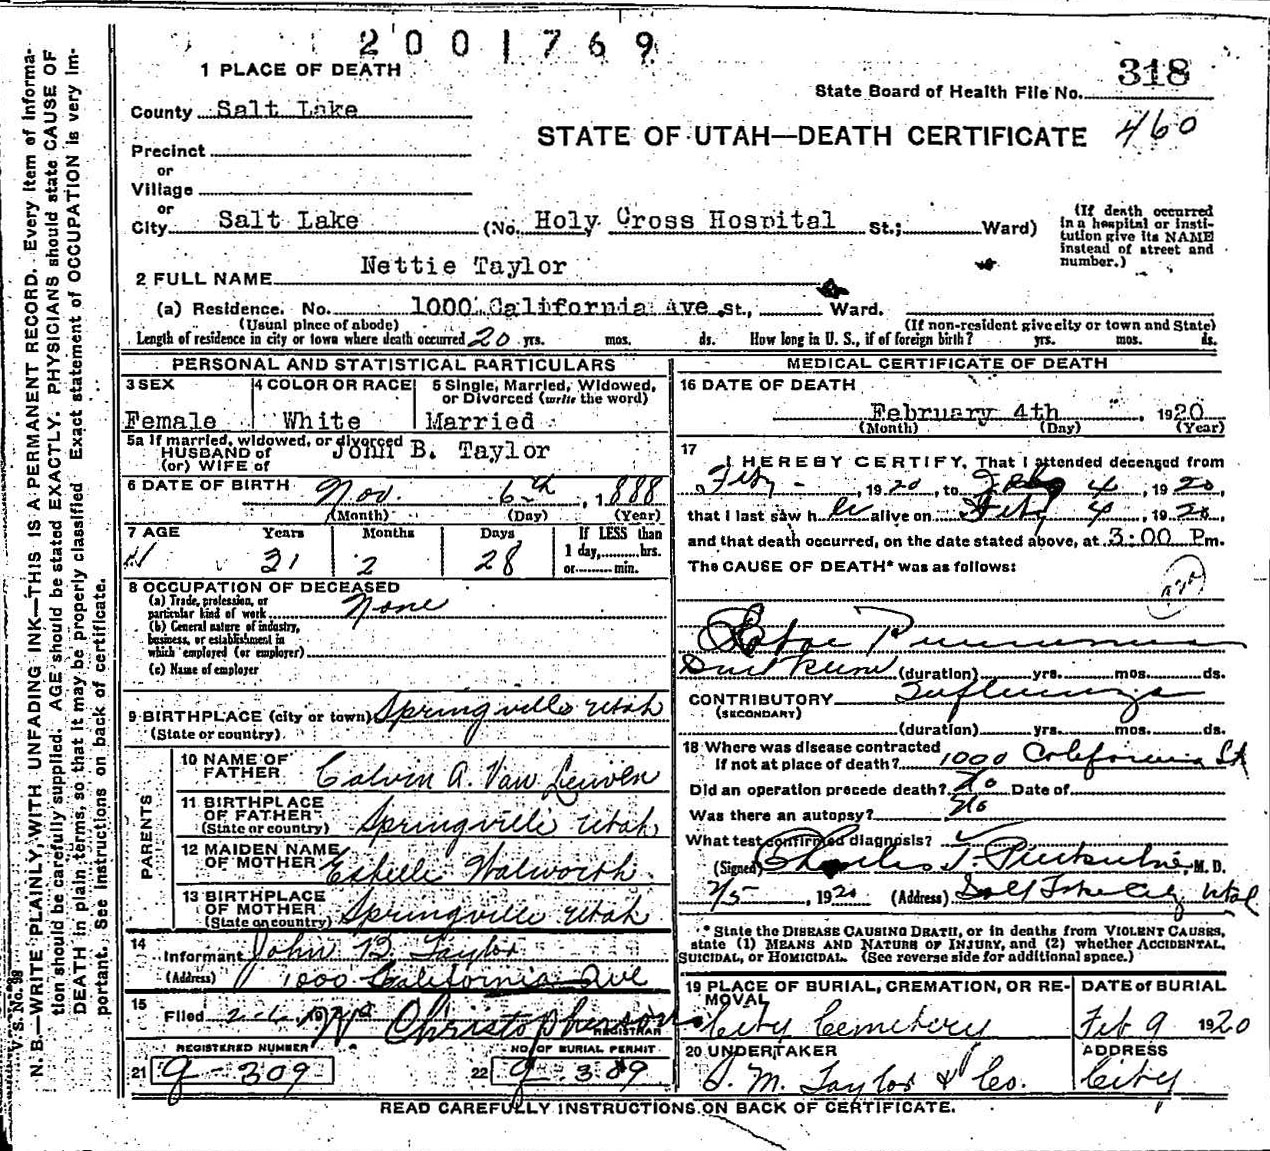 2001769
1 PLACE OF DEATH
318
State Board of Health File No.
County Salt Lake
STATE OF UTAH—DEATH CERTIFICATE 460
Precinct
or
Village
or
City Salt Lake (No. Holy Cross Hospital St.; Ward)
(If death occurred in a hospital or insti-
tution give its NAME
instead of street and
number.)
2 FULL NAME Nettie Taylor
(a) Residence. No. 1000 California Ave. St., Ward.
(Usual place of abode) (If non-resident give city or town and State)
Length of residence in city or town where death occurred 20 yrs. mos. ds. How long in U. S., if of foreign birth? yrs. mos. ds.
PERSONAL AND STATISTICAL PARTICULARS
3 SEX 4 COLOR OR RACE 5 Single, Married, Widowed,
or Divorced (write the word)
Female White Married
5a If married, widowed, or divorced
HUSBAND of John B. Taylor
(or) WIFE of
6 DATE OF BIRTH Nov. 6th, 1888
(Month) (Day) (Year)
7 AGE Years Months Days If LESS than
1 day, hrs.
31 2 28 or min.
8 OCCUPATION OF DECEASED
(a) Trade, profession, or
particular kind of work None
(b) General nature of industry,
business, or establishment in
which employed (or employer)
(c) Name of employer
9 BIRTHPLACE (city or town) Springville Utah
(State or country)
PARENTS
10 NAME OF
FATHER Calvin A. Van Leuven
11 BIRTHPLACE
OF FATHER Springville Utah
(State or country)
12 MAIDEN NAME
OF MOTHER Estelle Walworth
13 BIRTHPLACE
OF MOTHER Springville Utah
(State or country)
14 Informant John B. Taylor
(Address) 1000 California Ave
15 Filed 2-6, 19 Christopherson
REGISTRAR
REGISTERED NUMBER NO. OF BURIAL PERMIT
21 g-309 22 g-309
MEDICAL CERTIFICATE OF DEATH
16 DATE OF DEATH
February 4th, 1920
(Month) (Day) (Year)
17
I HEREBY CERTIFY, That I attended deceased from
Feby -, 1920, to Feby 4, 1920,
that I last saw her alive on Feby 4, 1920,
and that death occurred, on the date stated above, at 3:00 Pm.
The CAUSE OF DEATH* was as follows:
Lobar Pneumonia
(duration) yrs. mos. ds.
CONTRIBUTORY Influenza
(SECONDARY)
(duration) yrs. mos. ds.
18 Where was disease contracted
If not at place of death? 1000 California St
Did an operation precede death? No Date of
Was there an autopsy? No
What test confirmed diagnosis?
(Signed) Charles, M. D.
2/5, 1920 (Address) Salt Lake City Utah
* State the DISEASE CAUSING DEATH, or in deaths from VIOLENT CAUSES,
state (1) MEANS AND NATURE OF INJURY, and (2) whether ACCIDENTAL,
SUICIDAL, or HOMICIDAL. (See reverse side for additional space.)
19 PLACE OF BURIAL, CREMATION, OR RE-
MOVAL DATE of BURIAL
City Cemetery Feb 9 1920
20 UNDERTAKER ADDRESS
S. M. Taylor & Co. City
READ CAREFULLY INSTRUCTIONS ON BACK OF CERTIFICATE.
V. S. No. 98
N. B.—WRITE PLAINLY, WITH UNFADING INK—THIS IS A PERMANENT RECORD. Every item of informa-
tion should be carefully supplied. AGE should be stated EXACTLY. PHYSICIANS should state CAUSE OF
DEATH in plain terms, so that it may be properly classified. Exact statement of OCCUPATION is very im-
portant. See Instructions on back of certificate.